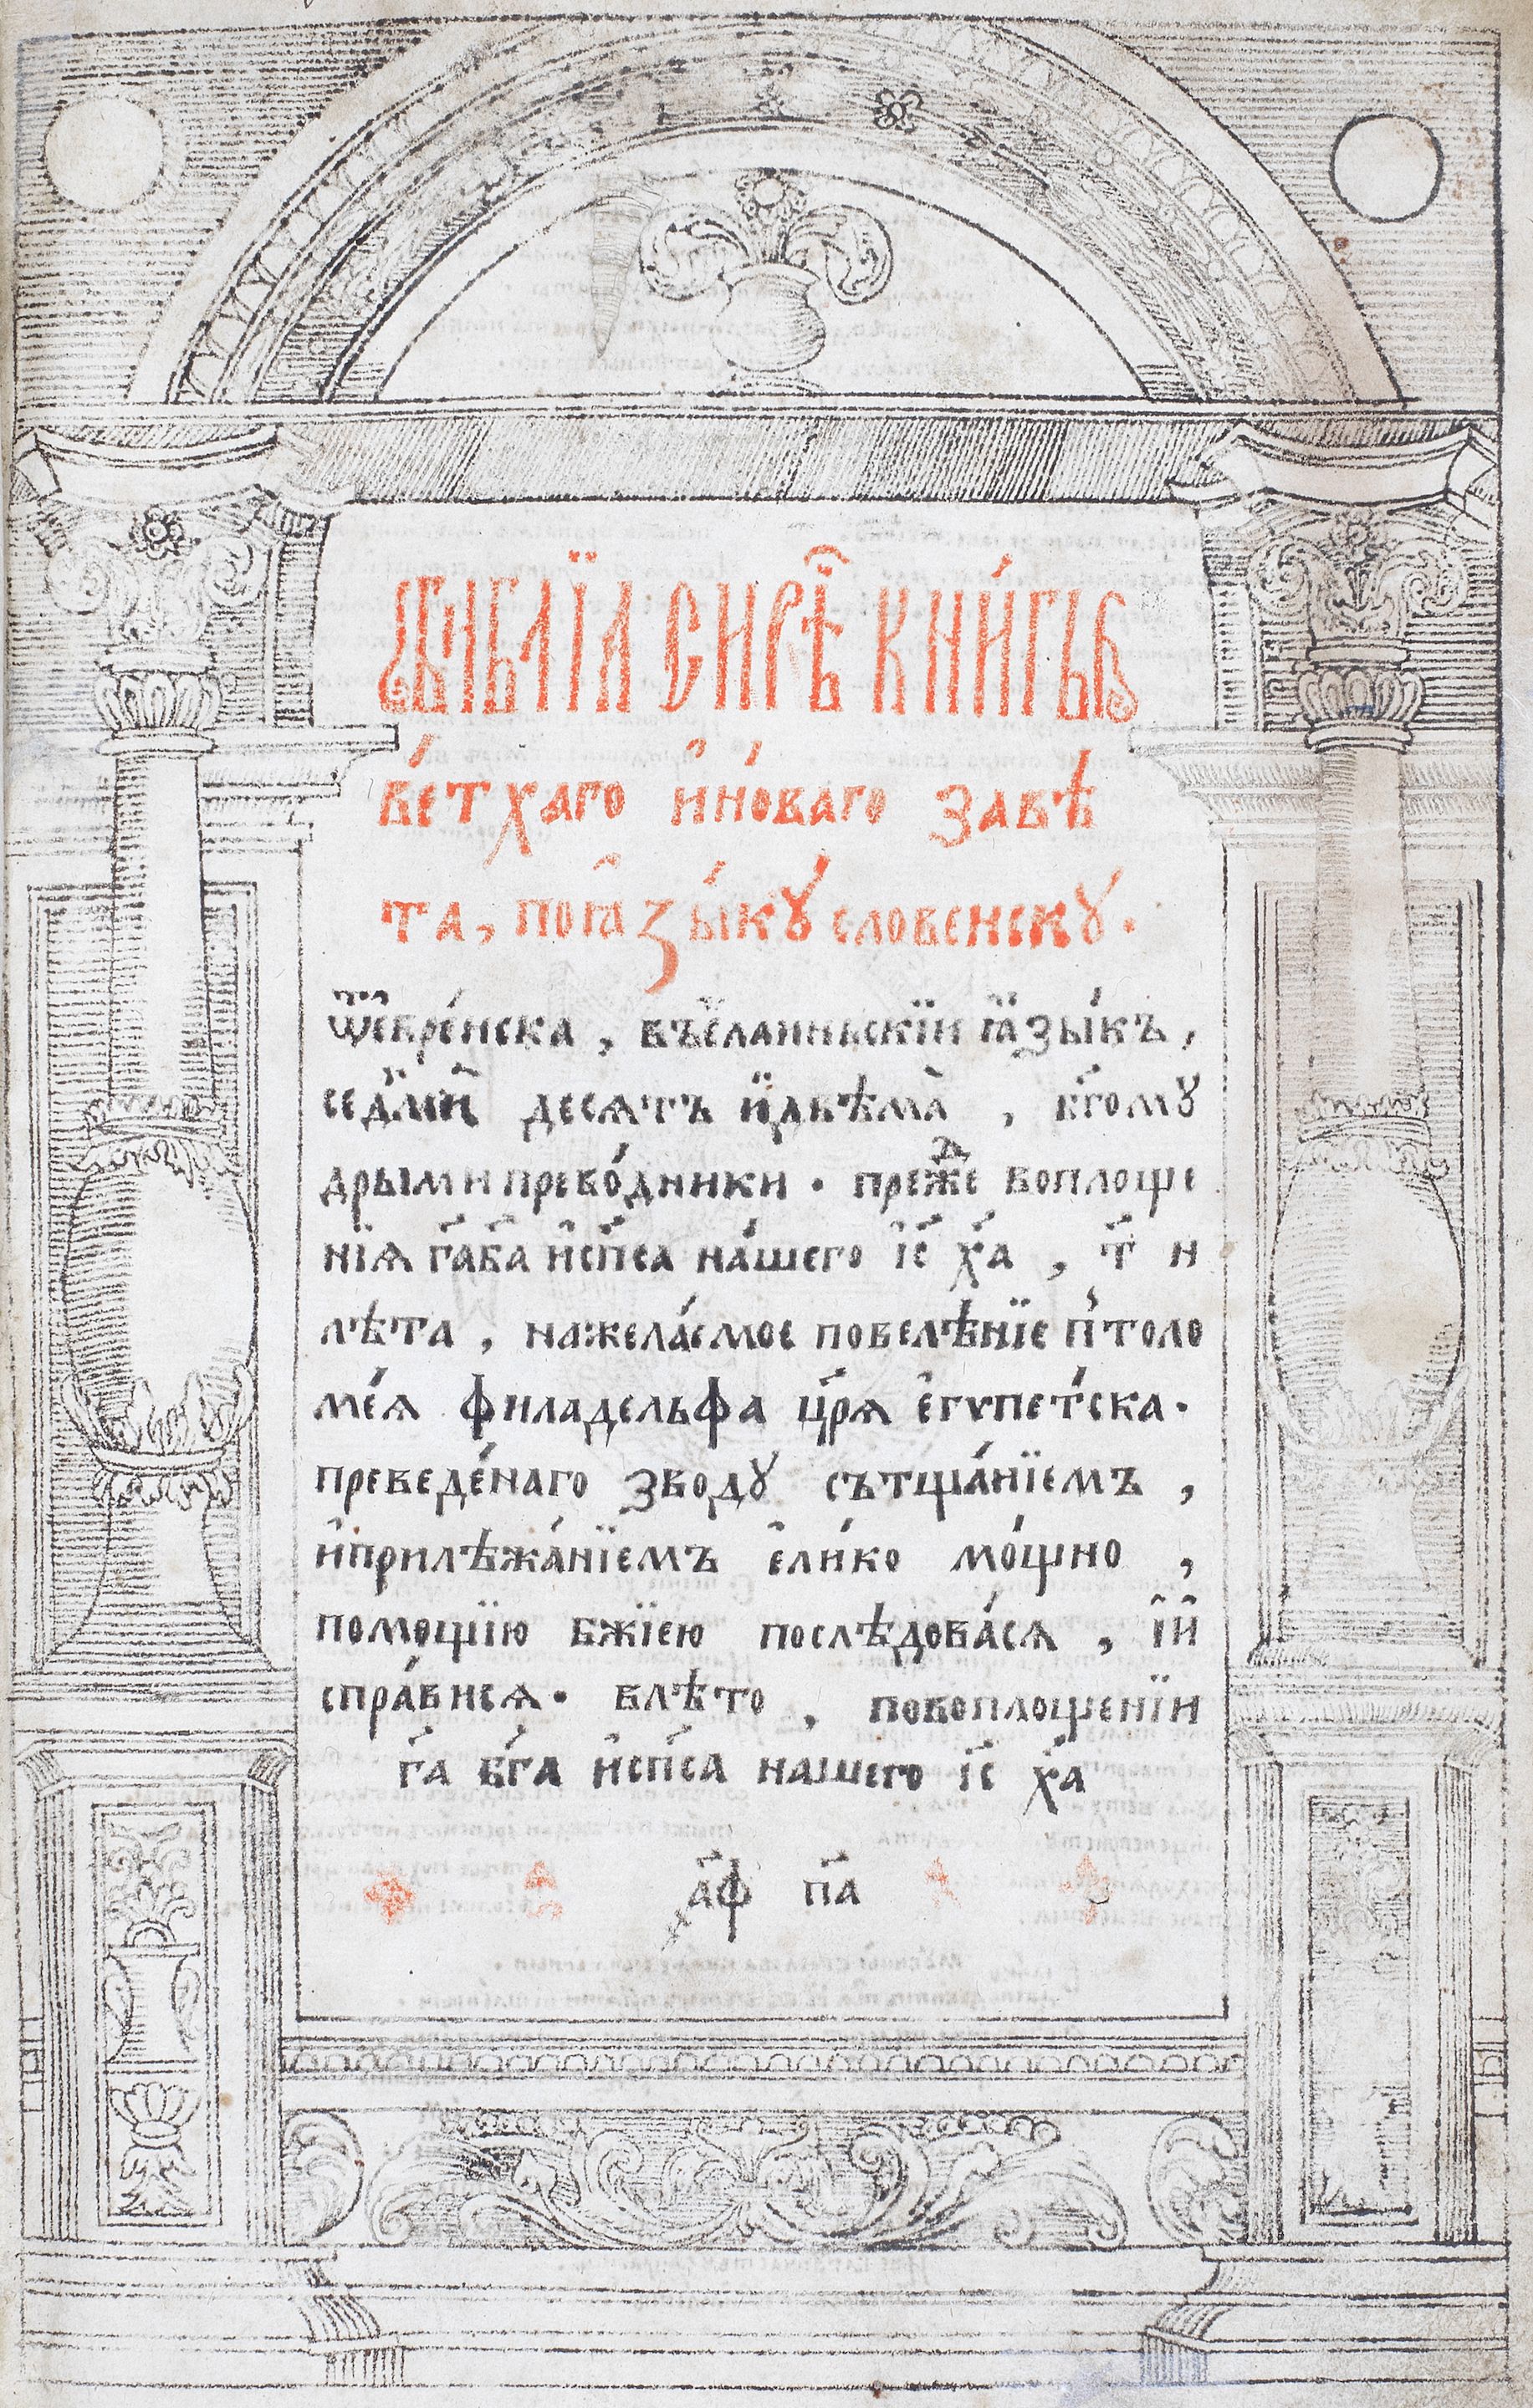 Библїа сирѣ҃ кни́гы
ве́тхаго и҆но́ваго завѣ
та, поꙗ҆зы́кꙋ словенскꙋ.
Ѿевре́иска, въе҆ллинньскїи ꙗ҆зы́къ,
седми́ десѧтъ и҆двѣма̀, бг҃омꙋ
дрыми прево́дники. преⷤде воплоще
нїѧ г҃а б҃а и҆сп҃са на́шего і҆с҃ х҃а, т҃ и
лѣта, нажела́емое повелѣ́нїе п̾толо
ме́ѧ филадельфа цр҃ѧ е҆гѵпе́тска.
преведе́наго зводꙋ сътща́нїемъ,
и҆прилѣжа́нїемъ е҆ли́ко мо́щно,
помощїю бж҃їею послѣдова́сѧ, і҆и҆
спра́висѧ. влѣто, повоплощенїи
г҃а бг҃а и҆сп҃са нашего і҆с҃ х҃а
҂а҃ф п҃а